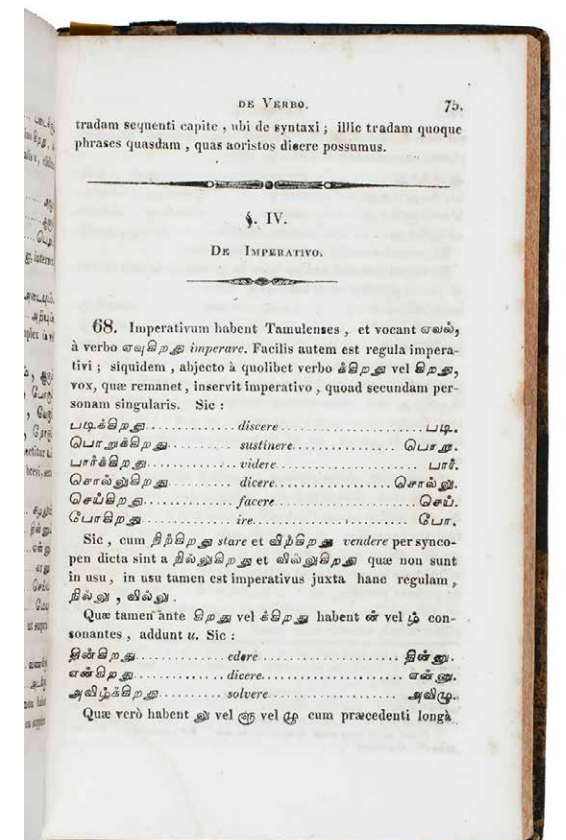 DE VERBO. 75.
tradam sequenti capite , ubi de syntaxi ; illic tradam quoque
phrases quasdam , quas aoristos dicere possumus.
§. IV.
DE IMPERATIVO.
68. Imperativum habent Tamulenses , et vocant ஏவல்,
à verbo ஏவுகிறது imperare. Facilis autem est regula impera-
tivi ; siquidem , abjecto à quolibet verbo க்கிறது vel கிறது,
vox, quæ remanet, inservit imperativo , quoad secundam per-
sonam singularis. Sic :
படிக்கிறது............. discere.................... படி.
பொறுக்கிறது......... sustinere............... பொறு.
பார்க்கிறது............. videre..................... பார்.
சொல்லுகிறது......... dicere............... சொல்லு.
செய்கிறது............. facere................... செய்.
போகிறது............... ire...................... போ.
Sic , cum நிற்கிறது stare et விற்கிறது vendere per synco-
pen dicta sint a நில்லுகிறது et வில்லுகிறது quæ non sunt
in usu, in usu tamen est imperativus juxta hanc regulam ,
நில்லு , வில்லு .
Quæ tamen ante கிறது vel க்கிறது habent ன் vel ழ் con-
sonantes , addunt u. Sic :
தின்கிறது............. edere.................. தின்னு.
என்கிறது............. dicere.................. என்னு.
அவிழ்க்கிறது......... solvere................ அவிழு.
Quæ verò habent லு vel ளு vel ழு cum præcedenti longâ